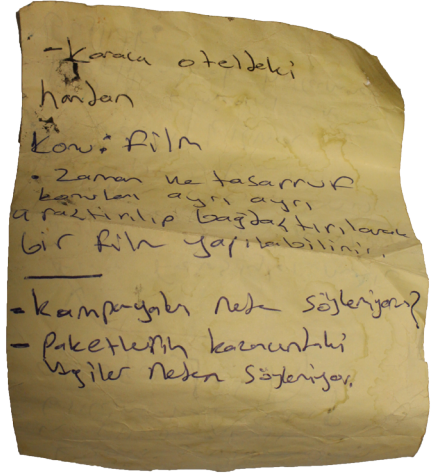 - Karaca oteldeki
handan
Konu: film
- Zaman ve tasarruf
konuları ayrı ayrı
araştırılıp bağdaştırılarak
bir film yapılabilinir.
- Kampanyaları neden söyleniyor?
- paketlerin kazancındaki
neden söyleniyor.